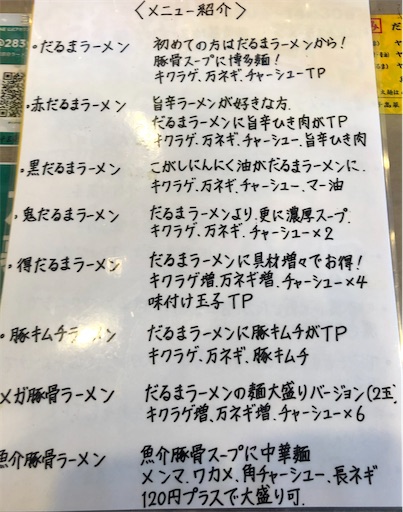 〈メニュー紹介〉
・だるまラーメン 初めての方はだるまラーメンから!
豚骨スープに博多麺!
キクラゲ、万ネギ、チャーシューTP
・赤だるまラーメン 旨辛ラーメンが好きな方、
だるまラーメンに旨辛ひき肉がTP
キクラゲ、万ネギ、チャーシュー、旨辛ひき肉
・黒だるまラーメン こがしにんにく油がだるまラーメンに、
キクラゲ、万ネギ、チャーシュー、マー油
・鬼だるまラーメン だるまラーメンより、更に濃厚スープ、
キクラゲ、万ネギ、チャーシュー×2
・得だるまラーメン だるまラーメンに具材増々でお得!
キクラゲ増、万ネギ増、チャーシュー×4
味付け玉子TP
・豚キムチラーメン だるまラーメンに豚キムチがTP
キクラゲ、万ネギ、豚キムチ
メガ豚骨ラーメン だるまラーメンの麺大盛りバージョン(2玉)
キクラゲ増、万ネギ増、チャーシュー×6
魚介豚骨ラーメン 魚介豚骨スープに中華麺
メンマ、ワカメ、角チャーシュー、長ネギ
120円プラスで大盛り可、